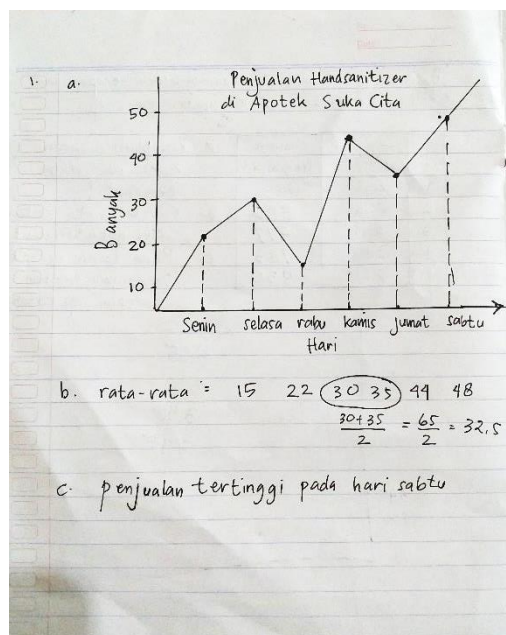 1. a. Penjualan Handsanitizer
di Apotek Suka Cita
50
40
30
20
10
Banyak
Senin selasa rabu kamis jumat sabtu
Hari
b. rata-rata = 15 22 30 35 44 48
30+35/2 = 65/2 = 32,5
c. penjualan tertinggi pada hari sabtu